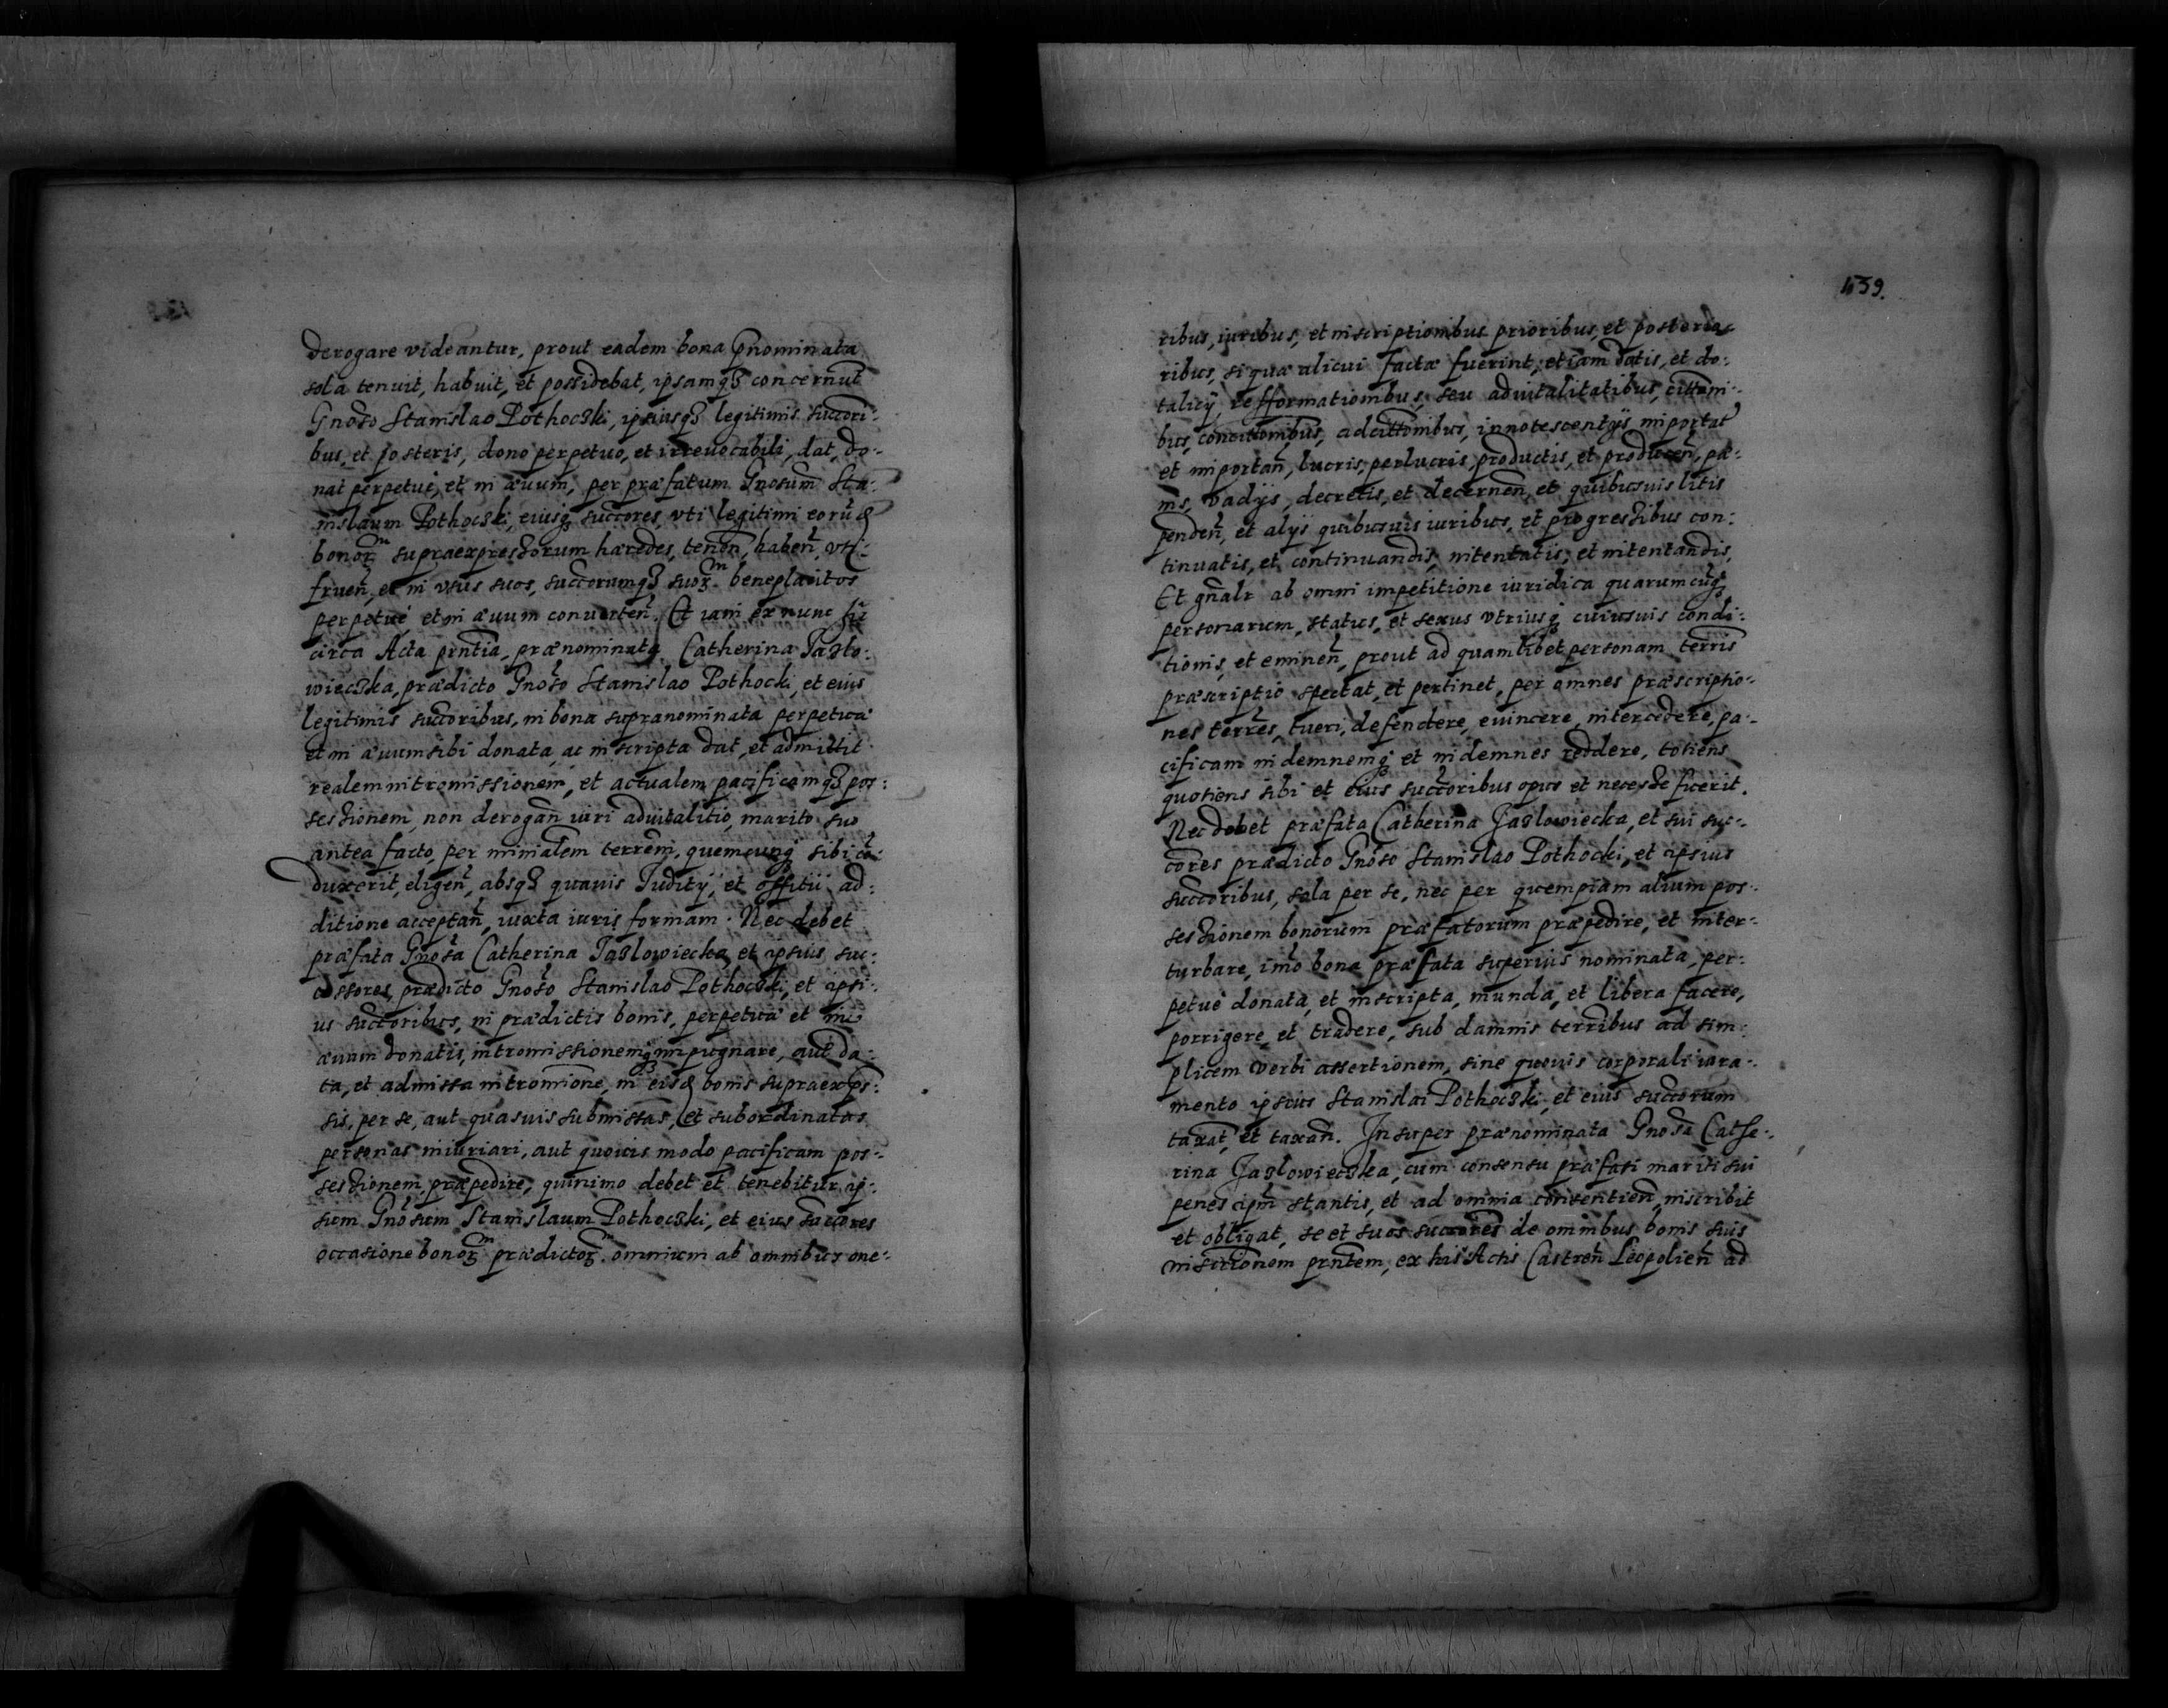 derogare videantur, prout eadem bona pnominata
sola tenuit, habuit, et possidebat, ipsamq3 concernut
Gnoso Stanislao Pothocski, ipsiusq3 legitimis succori-
bus, et posteris, dono perpetuo, et irreuocabili, dat, do-
nat perpetue, et in æuum, per præfatum Gnosum Sta-
nislaum Pothocski, eiusq succores, vti legitimi eorud
bonor supraexpressorum hæredes, tenen, haben, vti-
fruen, et in vsus suos, succorumq3 suor beneplacitos
perpetue et in æuum conuerten. Et iam ex nunc hic
circa Acta pntia, prænominata Catherina Jaslo-
wiecska, prædicto Gnoso Stanislao Pothocki, et eius
legitimis succoribus, in bona supranominata perpetua
et in æuum sibi donata, ac inscripta dat, et admittit
realem intromissionem, et actualem pacificamq3 pos-
sessionem, non derogan iuri aduitalitio, marito suo
antea facto, per minialem terrem, quemcunq sibi co-
duxerit, eligen, absq3 quauis Judicÿ, et offitii ad-
ditione acceptan, iuxta iuris formam. Nec debet
præfata Gnosa Catherina Jaslowiecka, et ipsius suc-
cessores, prædicto Gnoso Stanislao Pothocski, et ipsi-
us succoribus, in prædictis bonis, perpetua et in
æuum donatis, intromissionemq impugnare, aut da-
ta, et admissa intromione, in eisd bonis supraexps-
sis, per se, aut quasuis submissas, et subordinatas
personas iniuriari, aut quouis modo pacificam pos-
sessionem præpedire, quinimo debet et tenebitur ip-
sum Gnosum Stanislaum Pothocski, et eius succores
occasione bonor prædictor omnium ab omnibus one-
439.
ribus, iuribus, et inscriptionibus prioribus, et posterio-
ribus, si quæ alicui factæ fuerint, etiam datis, et do-
talicÿ, refformationibus, seu aduitalitatibus, cittoni-
bus, concittonibus, adcittonibus, innotescentÿs, importat
et importan, lucris, perlucris, productis, et producen, pæ-
nis, vadÿs, decretis, et decernen, et quibusuis litis
penden, et alÿs quibusuis iuribus, et progressibus con-
tinuatis, et continuandis, intentatis, et intentandis,
Et gnalr ab omni impetitione iuridica quarumcuq
personarum, status, et sexus vtriusq cuiusuis condi-
tionis, et eminen, prout ad quamlibet personam terris
præscriptio spectat, et pertinet, per omnes præscriptio-
nes terres, tueri, defendere, euincere, intercedere, pa-
cificam indemnemq et indemnes reddere, totiens
quotiens sibi et eius succoribus opus et necesse fuerit.
Nec debet præfata Catherina Jaslowiecka, et sui suc-
cores prædicto Gnoso Stanislao Pothocki, et ipsius
succoribus, sola per se, nec per quempiam alium pos-
sessionem bonorum præfatorum præpedire, et inter-
turbare, imo bona præfata superius nominata, per-
petue donata, et inscripta, munda, et libera facere,
porrigere, et tradere, sub damnis terribus ad sim-
plicem verbi assertionem, sine quouis corporali iura-
mento ipsius Stanislai Pothocski, et eius succorum
taxat et taxan. Insuper prænominata Gnosa Cathe-
rina Jaslowiecska, cum consensu præfati mariti sui
penes ipm stantis, et ad omnia consentien, inscribit
et obligat, se et suos succores de omnibus bonis suis
inscriptionem pntem, ex his Actis Castren Leopolien ad